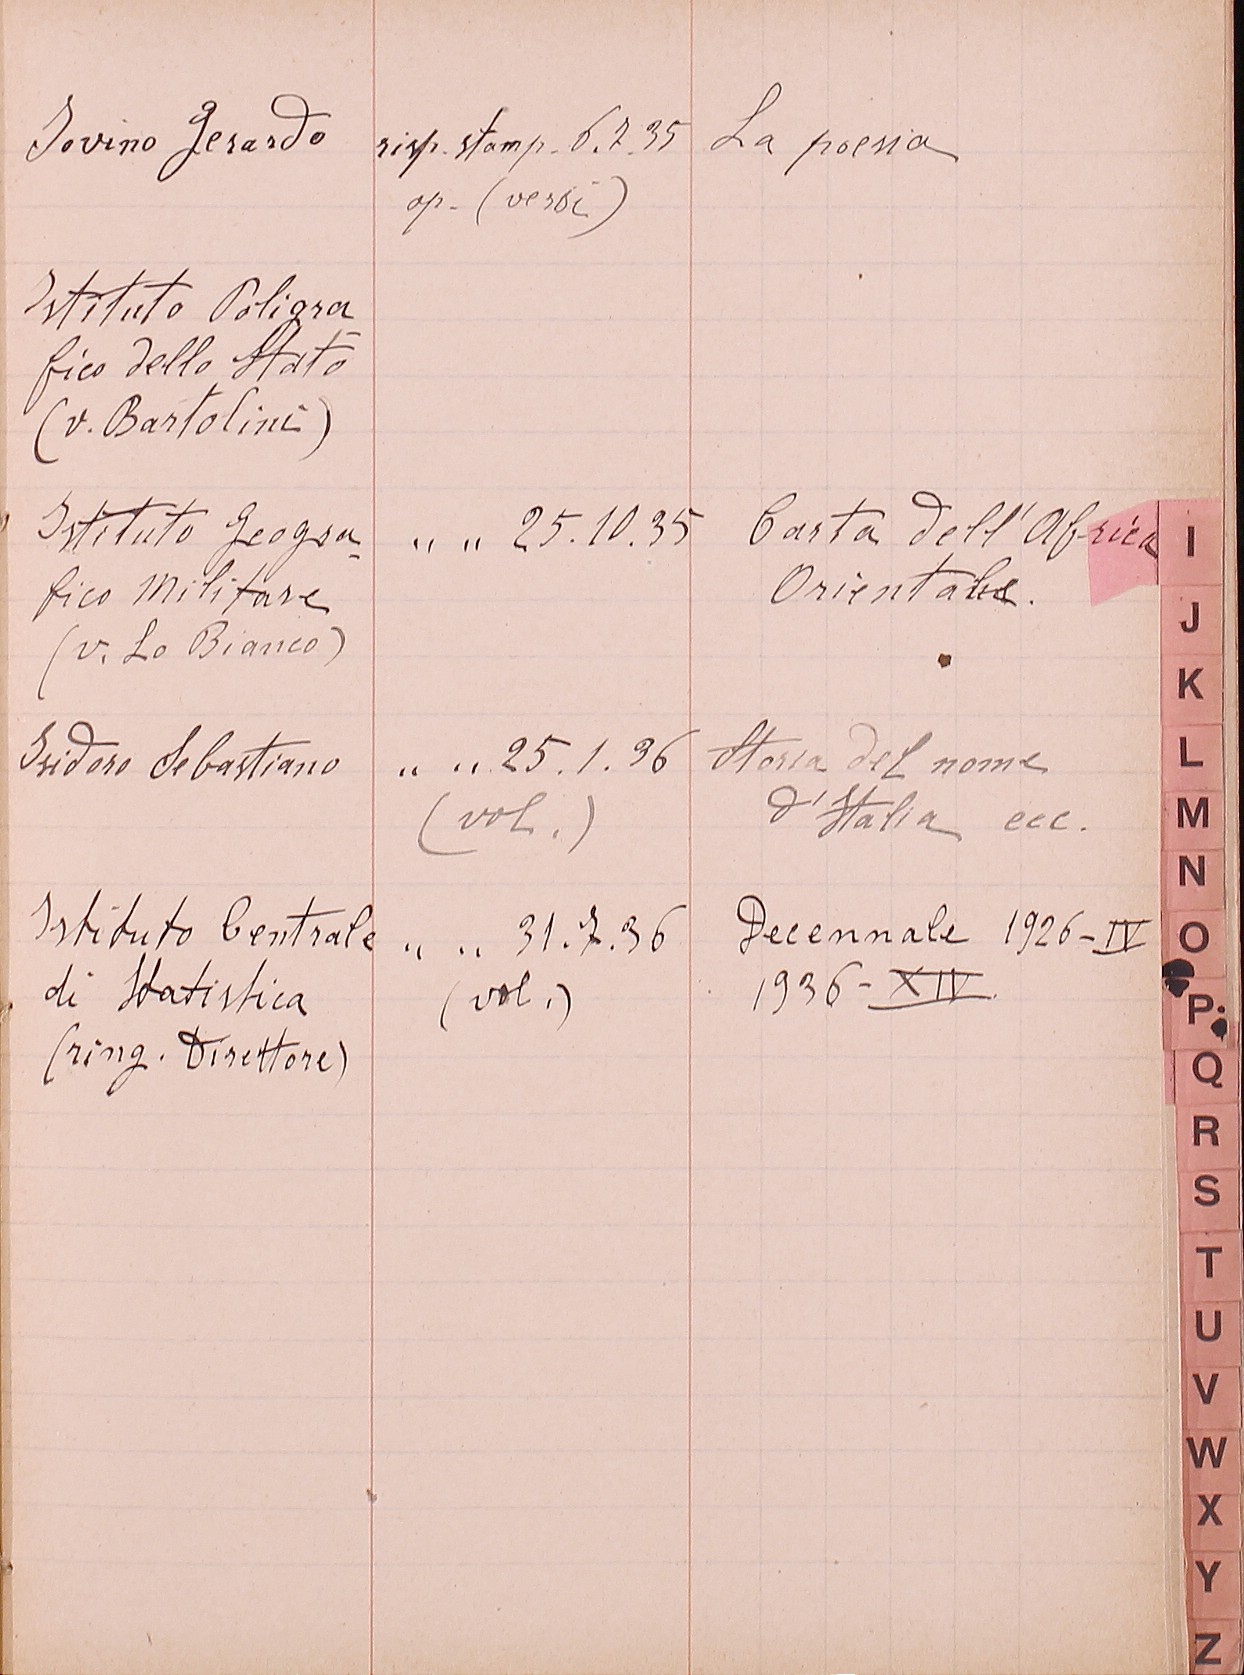 Iovino Gerardo risp. stamp. 6.7.35 La poesia
op. (versi)
Istituto Poligra
fico dello Stato
(v. Bartolini)
Istituto Geogra- " " 25.10.35 Carta dell'Africa
fico Militare Orientale.
(v. Lo Bianco)
Isidoro Sebastiano " " 25.1.36 Storia del nome
(vol.) d'Italia ecc.
Istituto Centrale " " 31.7.36 Decennale 1926-IV
di Statistica (vol.) 1936-XIV
(ring. Direttore)
I
J
K
L
M
N
O
P
Q
R
S
T
U
V
W
X
Y
Z